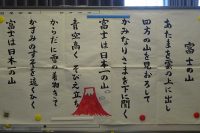 富士の山
あたまを雲の上に出し
四方の山を見おろして
かみなりさまを下に聞く
富士は日本一の山。
青空高くそびえ立ち
からだに雪の着物きて
かすみのすそを遠くひく
富士は日本一の山